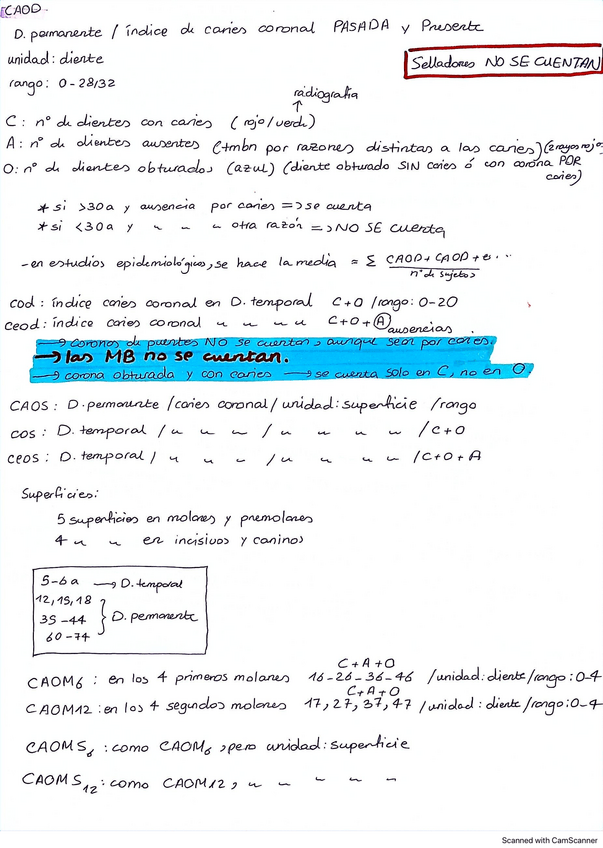 CAOD
D. permanente / índice de caries coronal PASADA y Presente
unidad: diente
Selladores NO SE CUENTAN
rango: 0-28/32
radiografía
↑
C: nº de dientes con caries (rojo/verde)
A: nº de dientes ausentes (tmbn por razones distintas a las caries) (2 rayas rojo)
O: nº de dientes obturados (azul) (diente obturado SIN caries ó con corona POR
caries)
* si >30a y ausencia por caries => se cuenta
* si <30a y " " otra razón => NO SE cuenta
- en estudios epidemiológicos, se hace la media = Σ CAOD + CAOD + ...
nº de sujetos
cod: índice caries coronal en D. temporal C+O / rango: 0-20
ceod: índice caries coronal " " " " C+O+(A) ausencias.
→ Coronas de puentes NO se cuentan, aunque sean por caries.
→ las MB no se cuentan.
→ corona obturada y con caries → se cuenta solo en C, no en O
CAOS: D. permanente / caries coronal / unidad: superficie / rango
cos: D. temporal / " " " / " " " " / C+O
ceos: D. temporal / " " " / " " " " / C+O+A
Superficies:
5 superficies en molares y premolares
4 " " en incisivos y caninos
5-6 a → D. temporal
12, 15, 18
35-44 } D. permanente
60-74
C+A+O
CAOM6: en los 4 primeros molares 16-26-36-46 / unidad: diente / rango: 0-4
C+A+O
CAOM12: en los 4 segundos molares 17, 27, 37, 47 / unidad: diente / rango: 0-4
CAOMS6: como CAOM6, pero unidad: superficie
CAOMS12: como CAOM12, " " " "
Scanned with CamScanner